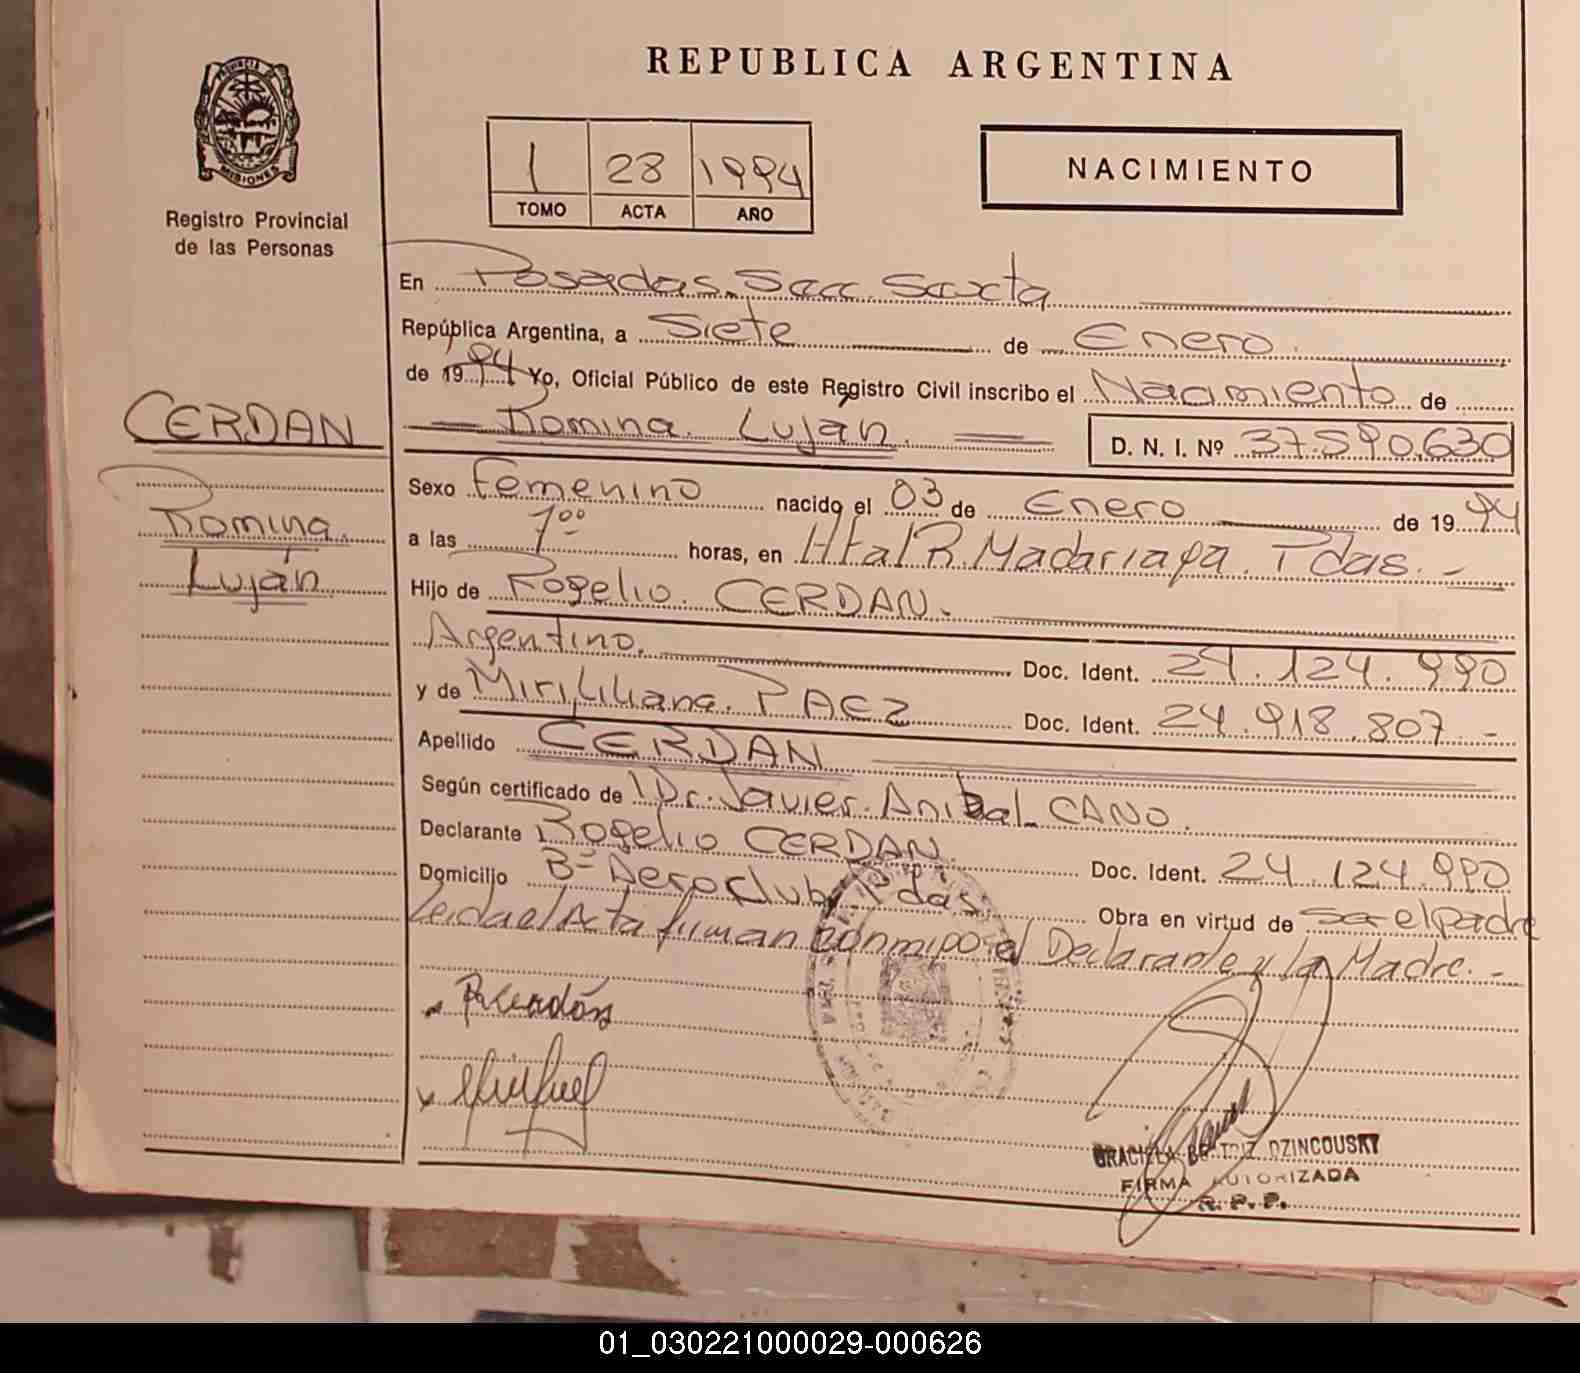 REPUBLICA ARGENTINA
PROVINCIA DE MISIONES
Registro Provincial
de las Personas
1 28 1994
TOMO ACTA AÑO
NACIMIENTO
En Posadas. Secc. Sexta
República Argentina, a Siete de Enero.
de 1994 Yo, Oficial Público de este Registro Civil inscribo el Nacimiento de
Romina. Luján. D. N. I. Nº 37.590.630
CERDAN
Romina.
Luján
Sexo Femenino nacido el 03 de Enero de 1994
a las 7⁰⁰ horas, en Htal R. Madariaga. Pdas. -
Hijo de Rogelio. CERDAN.
Argentino. Doc. Ident. 24.124.990
y de Miri Liliana. PAEZ Doc. Ident. 24.918.807 -
Apellido CERDAN
Según certificado de Dr. Javier. Anibal CANO.
Declarante Rogelio CERDAN. Doc. Ident. 24.124.990
Domicilio Bº Aeroclub. Pdas. Obra en virtud de ser el padre
Leida el Acta firman conmigo el Declarante y la Madre. -
GRACIELA BEATRIZ DZINCOUSKY
FIRMA AUTORIZADA
R. P. P.
01_030221000029-000626